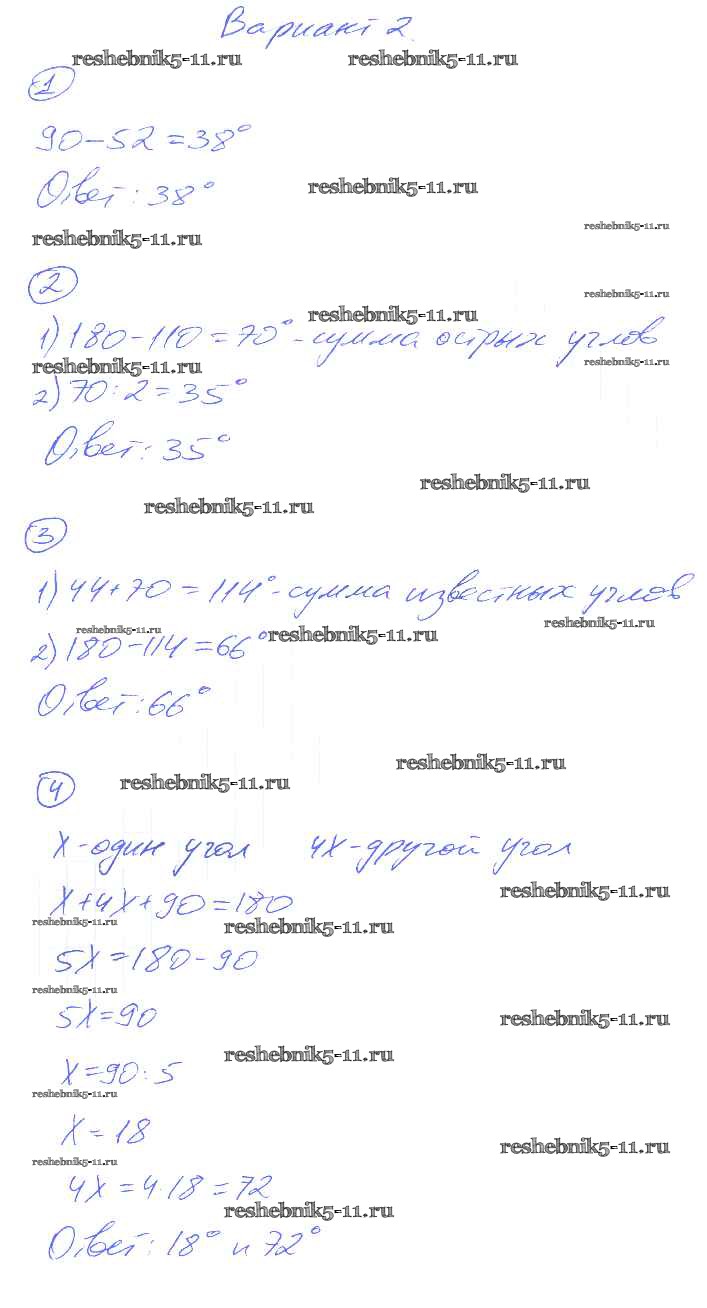 Вариант 2.
reshebnik5-11.ru reshebnik5-11.ru
1
90-52=38°
Ответ: 38° reshebnik5-11.ru
reshebnik5-11.ru
reshebnik5-11.ru
2
reshebnik5-11.ru
reshebnik5-11.ru
1) 180-110=70° - сумма острых углов
reshebnik5-11.ru reshebnik5-11.ru
2) 70:2=35°
Ответ: 35°
reshebnik5-11.ru
reshebnik5-11.ru
3
1) 44+70=114° - сумма известных углов
reshebnik5-11.ru reshebnik5-11.ru reshebnik5-11.ru
2) 180-114=66°
Ответ: 66°
reshebnik5-11.ru
4 reshebnik5-11.ru
x-один угол 4x-другой угол
reshebnik5-11.ru
x+4x+90=180
reshebnik5-11.ru reshebnik5-11.ru
5x=180-90
reshebnik5-11.ru
5x=90 reshebnik5-11.ru
reshebnik5-11.ru
x=90:5
reshebnik5-11.ru
x=18
reshebnik5-11.ru
reshebnik5-11.ru
4x=4·18=72
reshebnik5-11.ru
Ответ: 18° и 72°